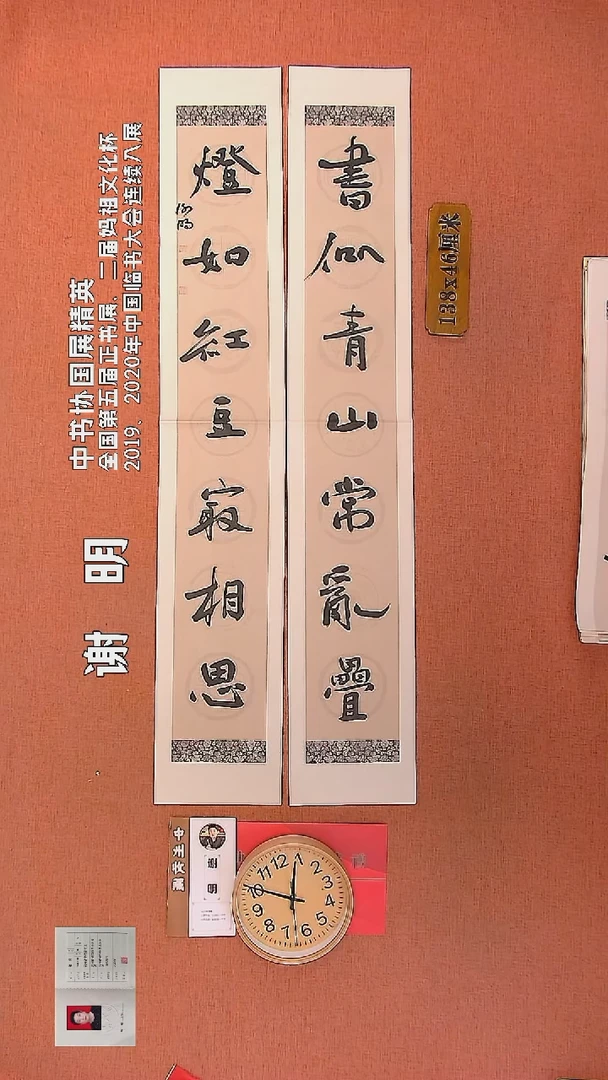 書似青山常亂疊
燈如紅豆最相思
谢明
138x46厘米
中书协国展精英
全国第五届正书展、二届妈祖文化杯
2019、2020年中国临书大会连续入展
谢 明
12
1
2
3
4
5
6
7
8
9
10
11